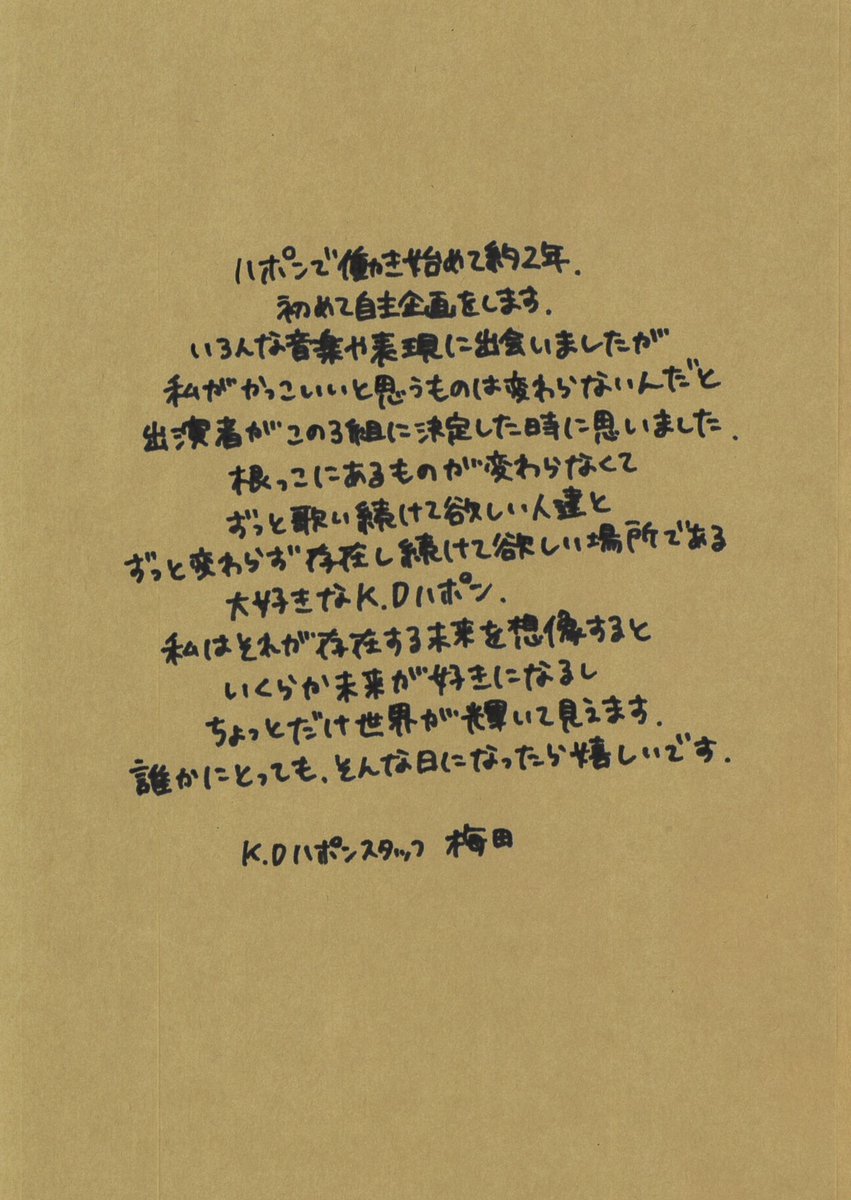 ハポンで働き始めて約2年.
初めて自主企画をします.
いろんな音楽や表現に出会いましたが
私がかっこいいと思うものは変わらないんだと
出演者がこの3組に決定した時に思いました.
根っこにあるものが変わらなくて
ずっと歌い続けて欲しい人達と
ずっと変わらず存在し続けて欲しい場所である
大好きなK.Dハポン.
私はそれが存在する未来を想像すると
いくらか未来が好きになるし
ちょっとだけ世界が輝いて見えます.
誰かにとっても、そんな日になったら嬉しいです.
K.Dハポンスタッフ 梅田